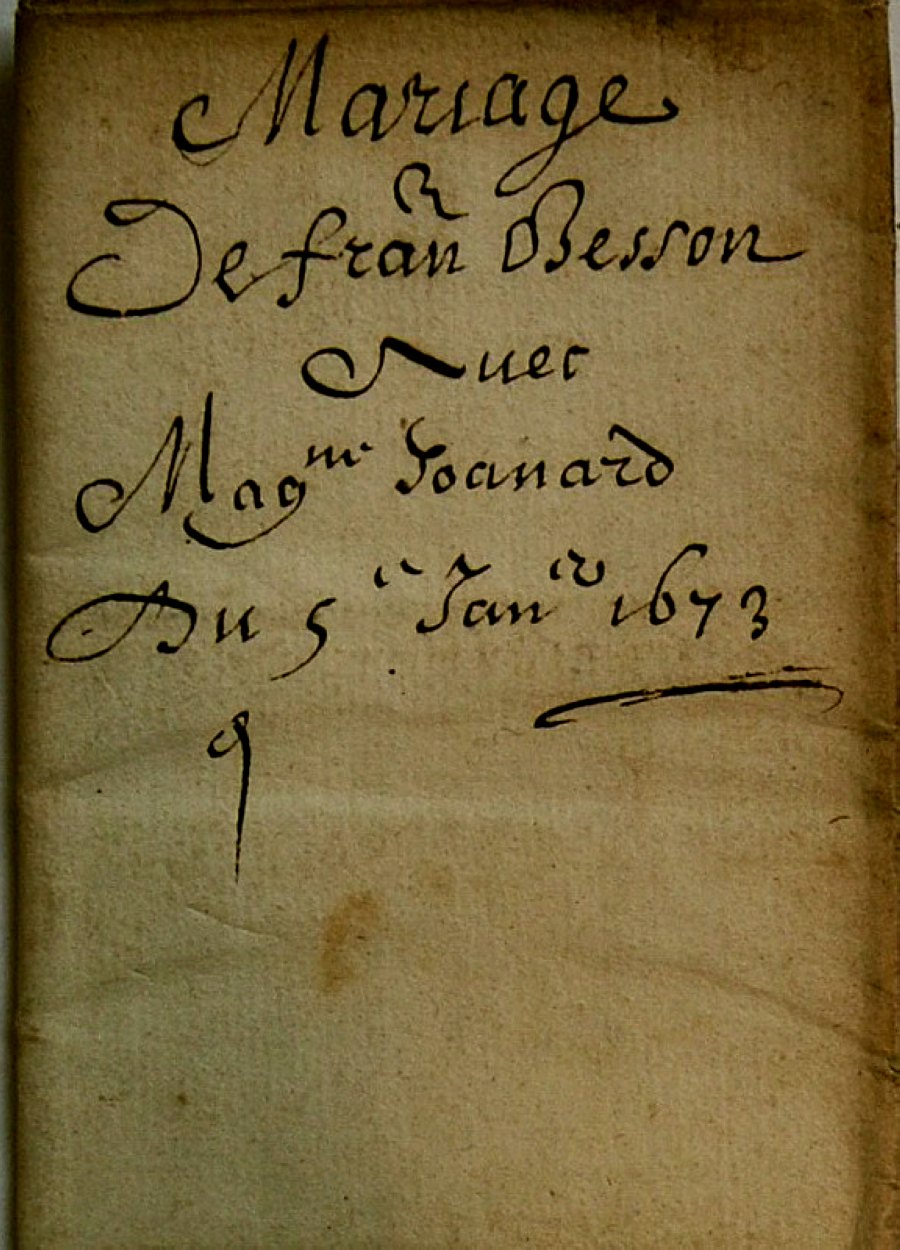 Mariage
De fran Besson
Auec
Mag^ne Joanard
Du 5^e Jan^er 1673